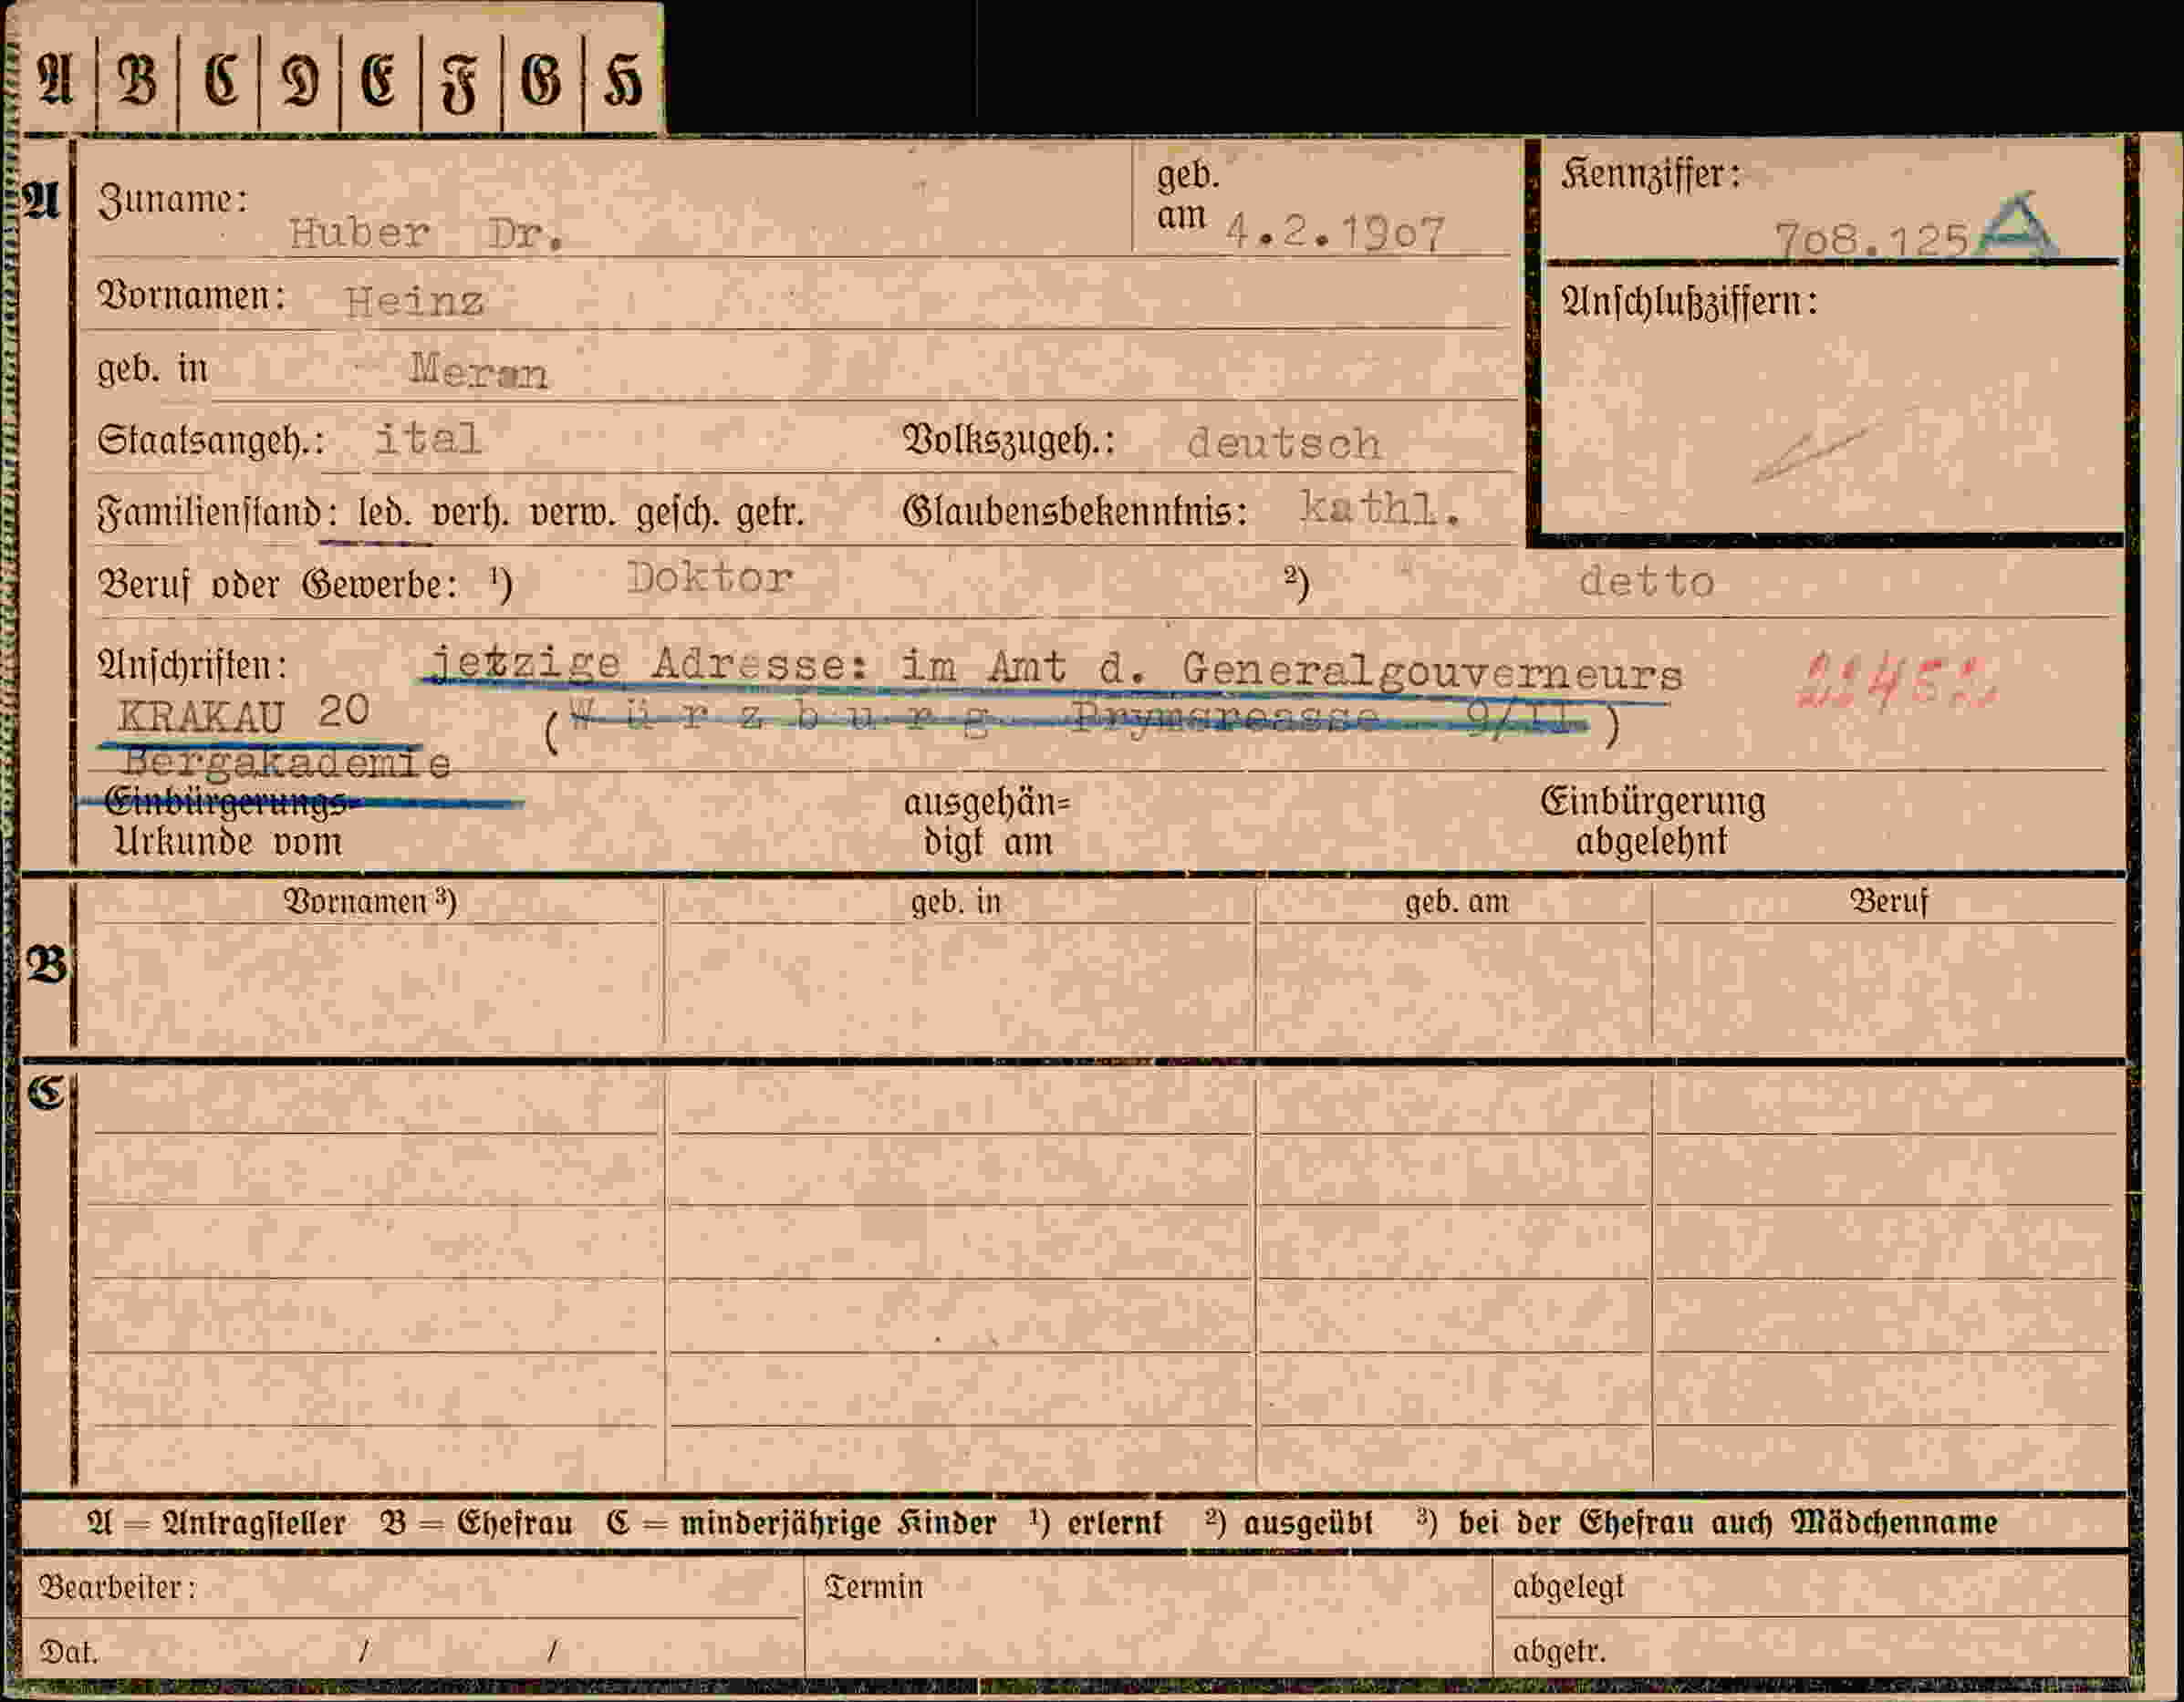 A B C D E F G H
A Zuname: Huber Dr. geb. am 4.2.1907 Kennziffer: 708.125 A
Vornamen: Heinz Anschlußziffern:
geb. in Meran
Staatsangeh.: ital Volkszugeh.: deutsch
Familienstand: led. verh. verw. gesch. getr. Glaubensbekenntnis: kathl.
Beruf oder Gewerbe: ¹) Doktor ²) detto
Anschriften: jetzige Adresse: im Amt d. Generalgouverneurs
KRAKAU 20 (Würzburg 9/II)
Bergakademie
Einbürgerungs= ausgehän= Einbürgerung
Urkunde vom digt am abgelehnt
Vornamen ³) geb. in geb. am Beruf
B
C
A = Antragsteller B = Ehefrau C = minderjährige Kinder ¹) erlernt ²) ausgeübt ³) bei der Ehefrau auch Mädchenname
Bearbeiter: Termin abgelegt
Dat. / / abgetr.